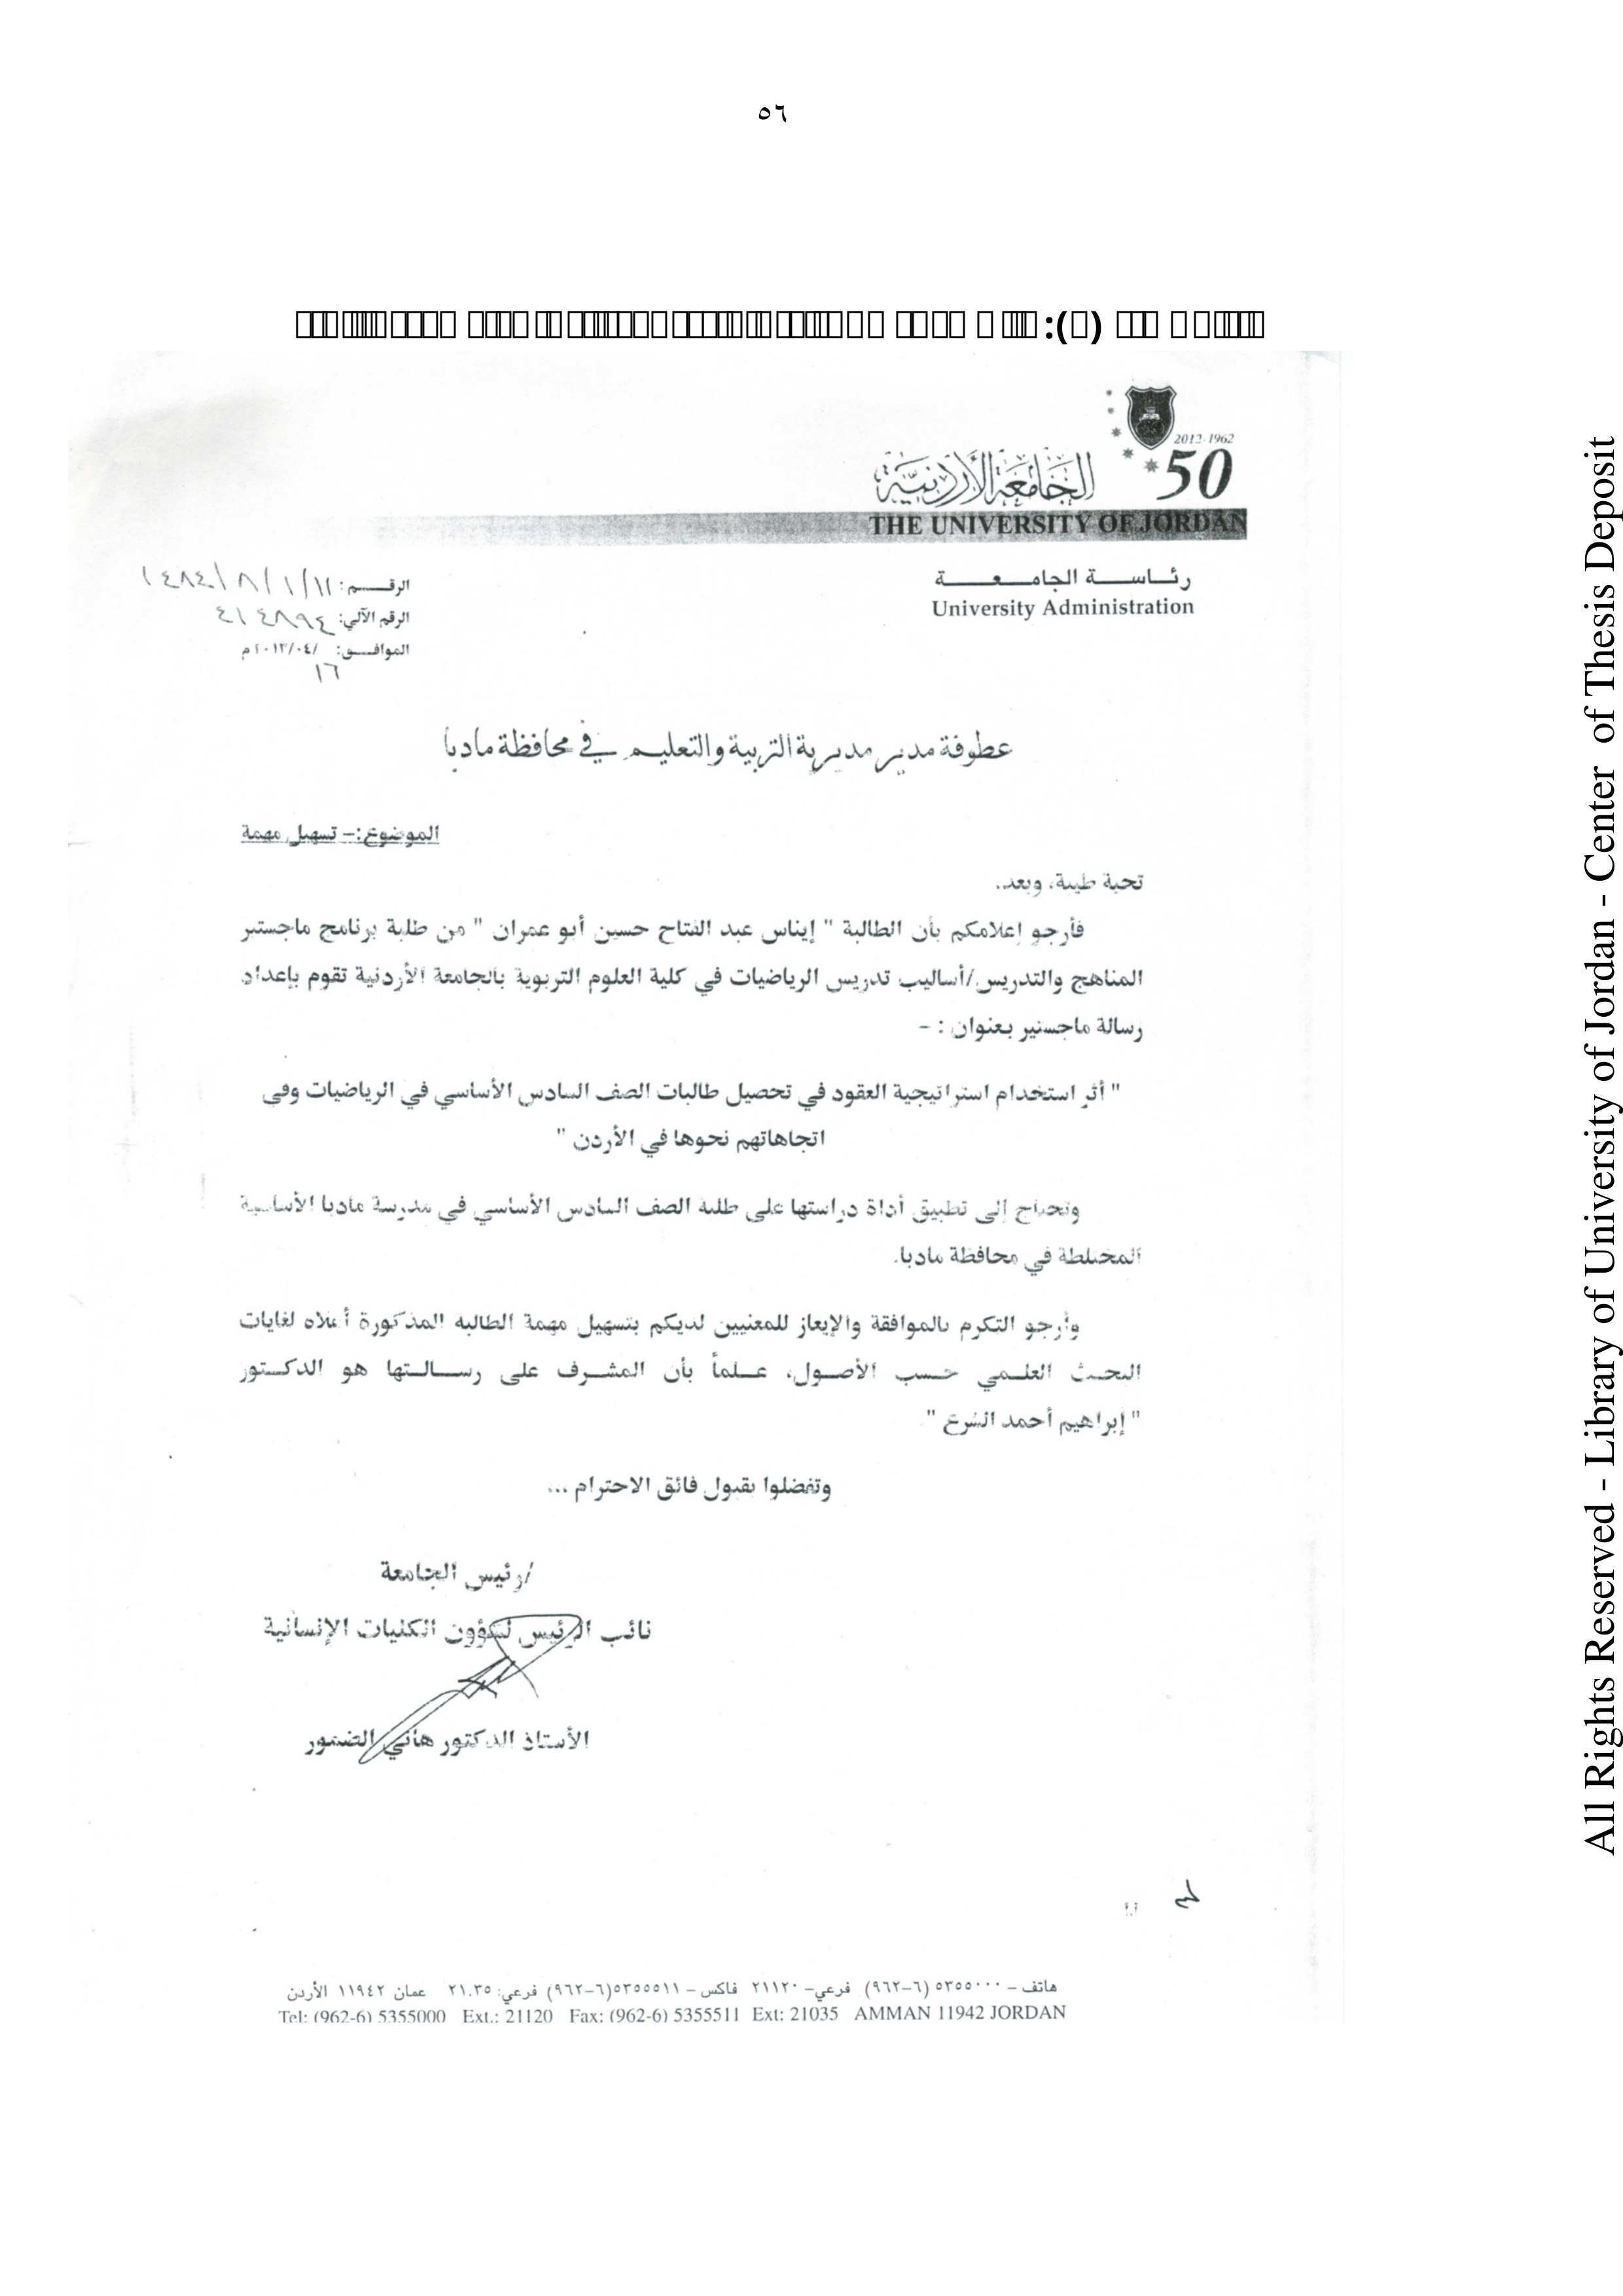 ٥٦
2012-1962
50
الجامعة الأردنية
THE UNIVERSITY OF JORDAN
رئاسة الجامعة
University Administration
الرقم: ١١/١/٨/١٤٨٤
الرقم الآلي: ٤١٤٨٩٤
الموافق: /٠٤/٢٠١٣م
١٦
عطوفة مدير مديرية التربية والتعليم في محافظة مادبا
الموضوع:- تسهيل مهمة
تحية طيبة، وبعد،
فأرجو إعلامكم بأن الطالبة " إيناس عبد الفتاح حسين أبو عمران " من طلبة برنامج ماجستير
المناهج والتدريس/أساليب تدريس الرياضيات في كلية العلوم التربوية بالجامعة الأردنية تقوم بإعداد
رسالة ماجستير بعنوان : -
" أثر استخدام استراتيجية العقود في تحصيل طالبات الصف السادس الأساسي في الرياضيات وفي
اتجاهاتهم نحوها في الأردن "
وتحتاج إلى تطبيق أداة دراستها على طلبة الصف السادس الأساسي في مدرسة مادبا الأساسية
المختلطة في محافظة مادبا.
وأرجو التكرم بالموافقة والإيعاز للمعنيين لديكم بتسهيل مهمة الطالبة المذكورة أعلاه لغايات
البحث العلمي حسب الأصول، علماً بأن المشرف على رسالتها هو الدكتور
" إبراهيم أحمد الشرع "
وتفضلوا بقبول فائق الاحترام ...
/رئيس الجامعة
نائب الرئيس لشؤون الكليات الإنسانية
الأستاذ الدكتور هاني الضمور
هاتف – ٥٣٥٥٠٠٠ (٦-٩٦٢) فرعي– ٢١١٢٠ فاكس – ٥٣٥٥٥١١(٦-٩٦٢) فرعي: ٢١٠٣٥ عمان ١١٩٤٢ الأردن
Tel: (962-6) 5355000 Ext.: 21120 Fax: (962-6) 5355511 Ext: 21035 AMMAN 11942 JORDAN
All Rights Reserved - Library of University of Jordan - Center of Thesis Deposit